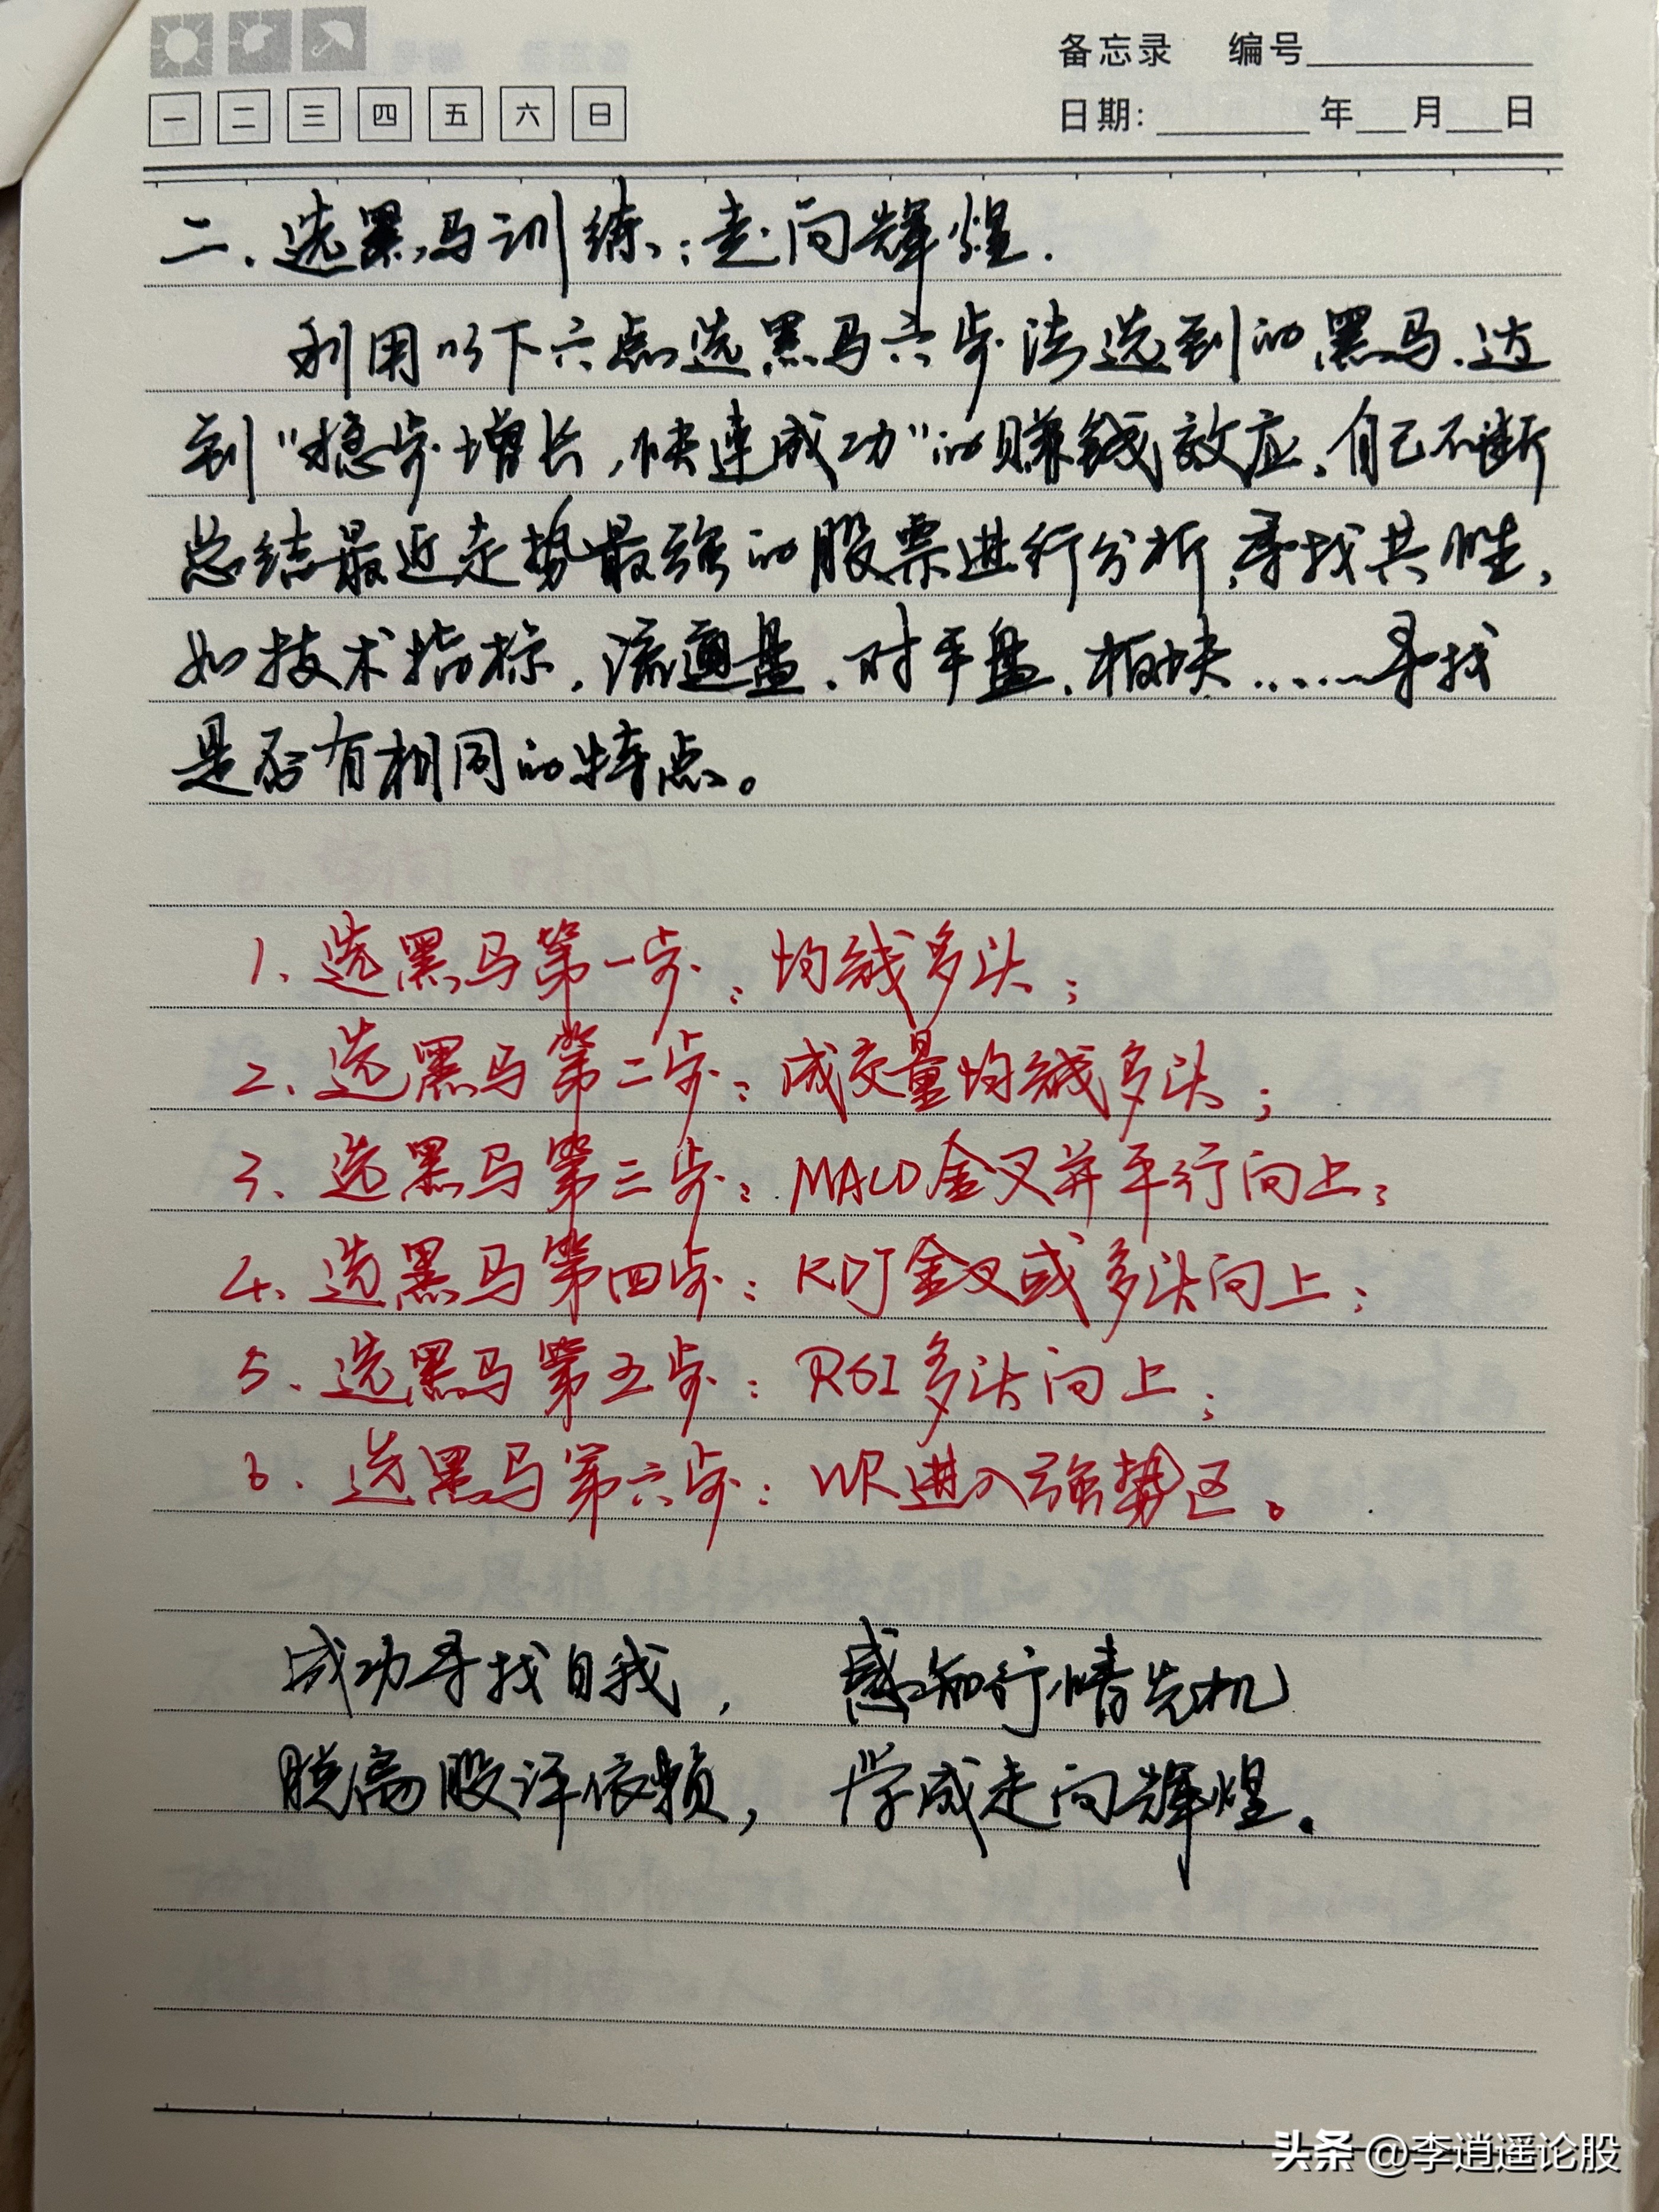 备忘录 编号
一 二 三 四 五 六 日
日期: 年 月 日
二.选黑马训练:走向辉煌.
利用以下六点选黑马六步法选到的黑马、达
到"稳步增长,快速成功"的赚钱效应。自己不断
总结最近走势最强的股票进行分析,寻找共性,
如技术指标,流通盘、对手盘、板块……寻找
是否有相同的特点。
1、选黑马第一步:均线多头;
2、选黑马第二步:成交量均线多头;
3、选黑马第三步:MACD金叉并平行向上;
4、选黑马第四步:KDJ金叉或多头向上;
5、选黑马第五步:RSI多头向上;
6、选黑马第六步:WR进入强势区。
成功寻找自我, 感知行情先机
脱离股评依赖, 学成走向辉煌.
头条 @李逍遥论股